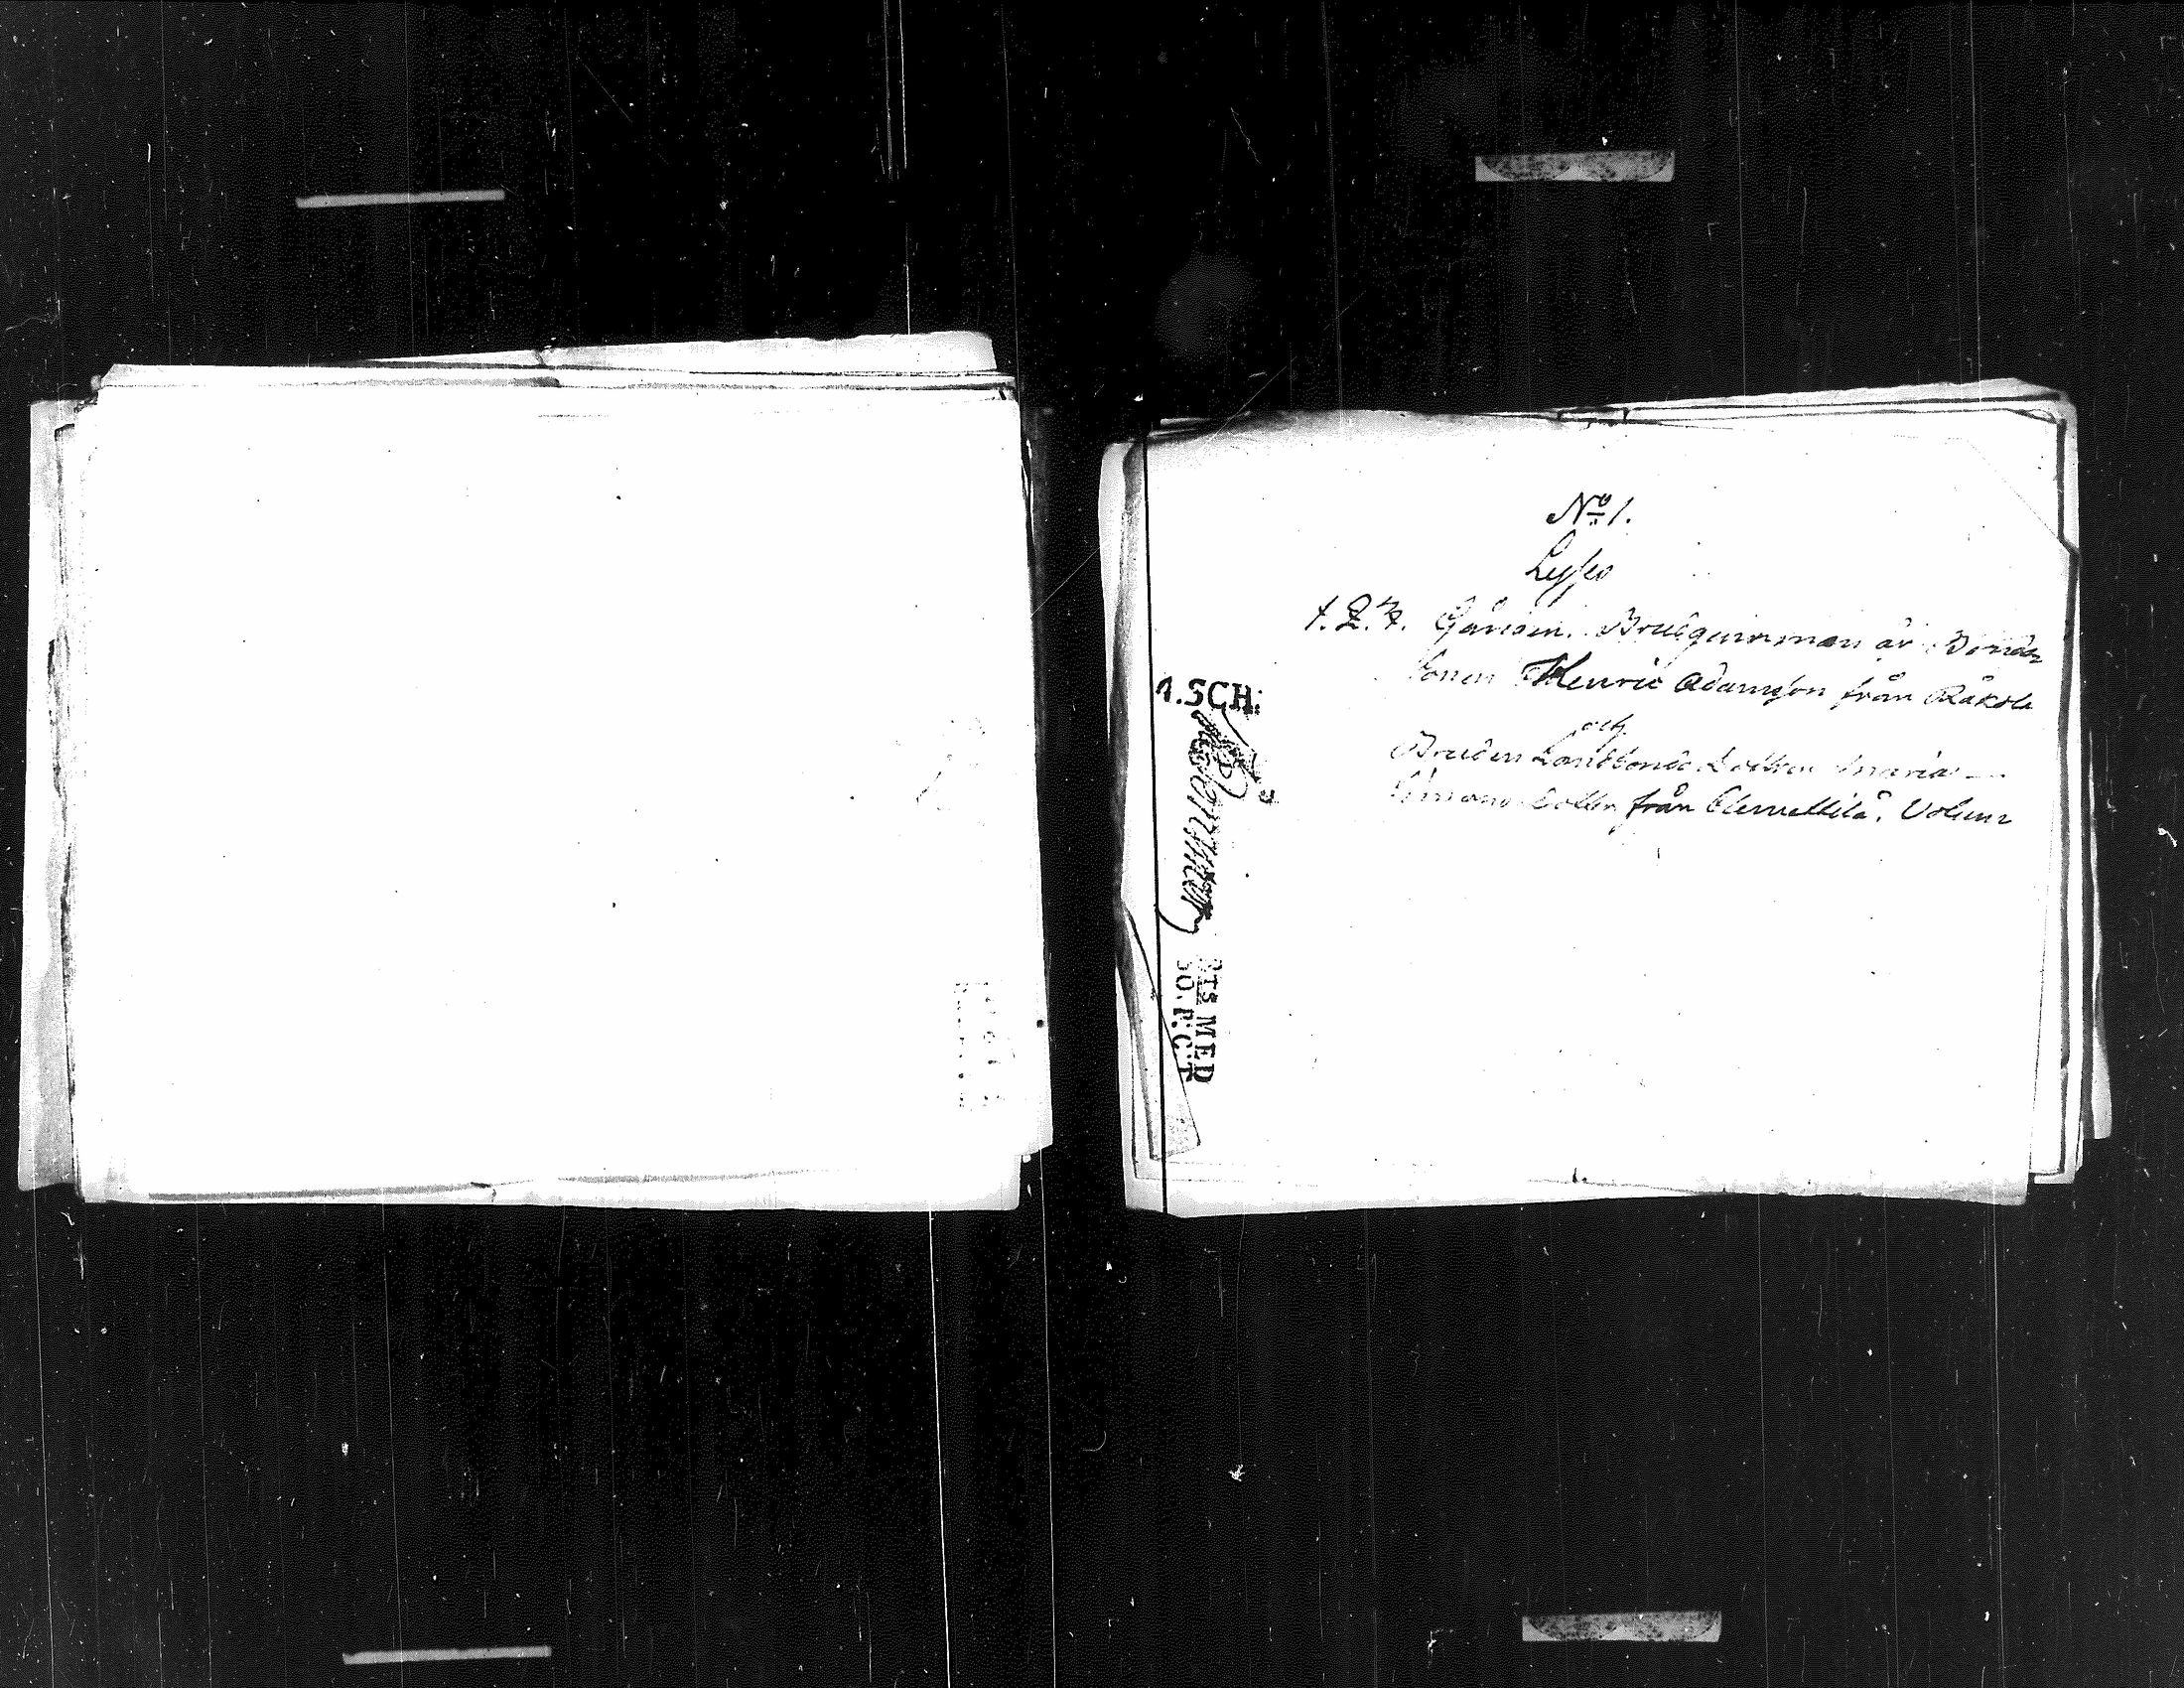 No 1.
Lyses
1. 2. 3. Gången. Brudgumman är Bonde
Sonen Henric Adamsson från Räkola
och
Bruden Landbonde Dottren Maria
Simons dotter från Clemettilä.
1.SCH:
MED
30. P.C.T